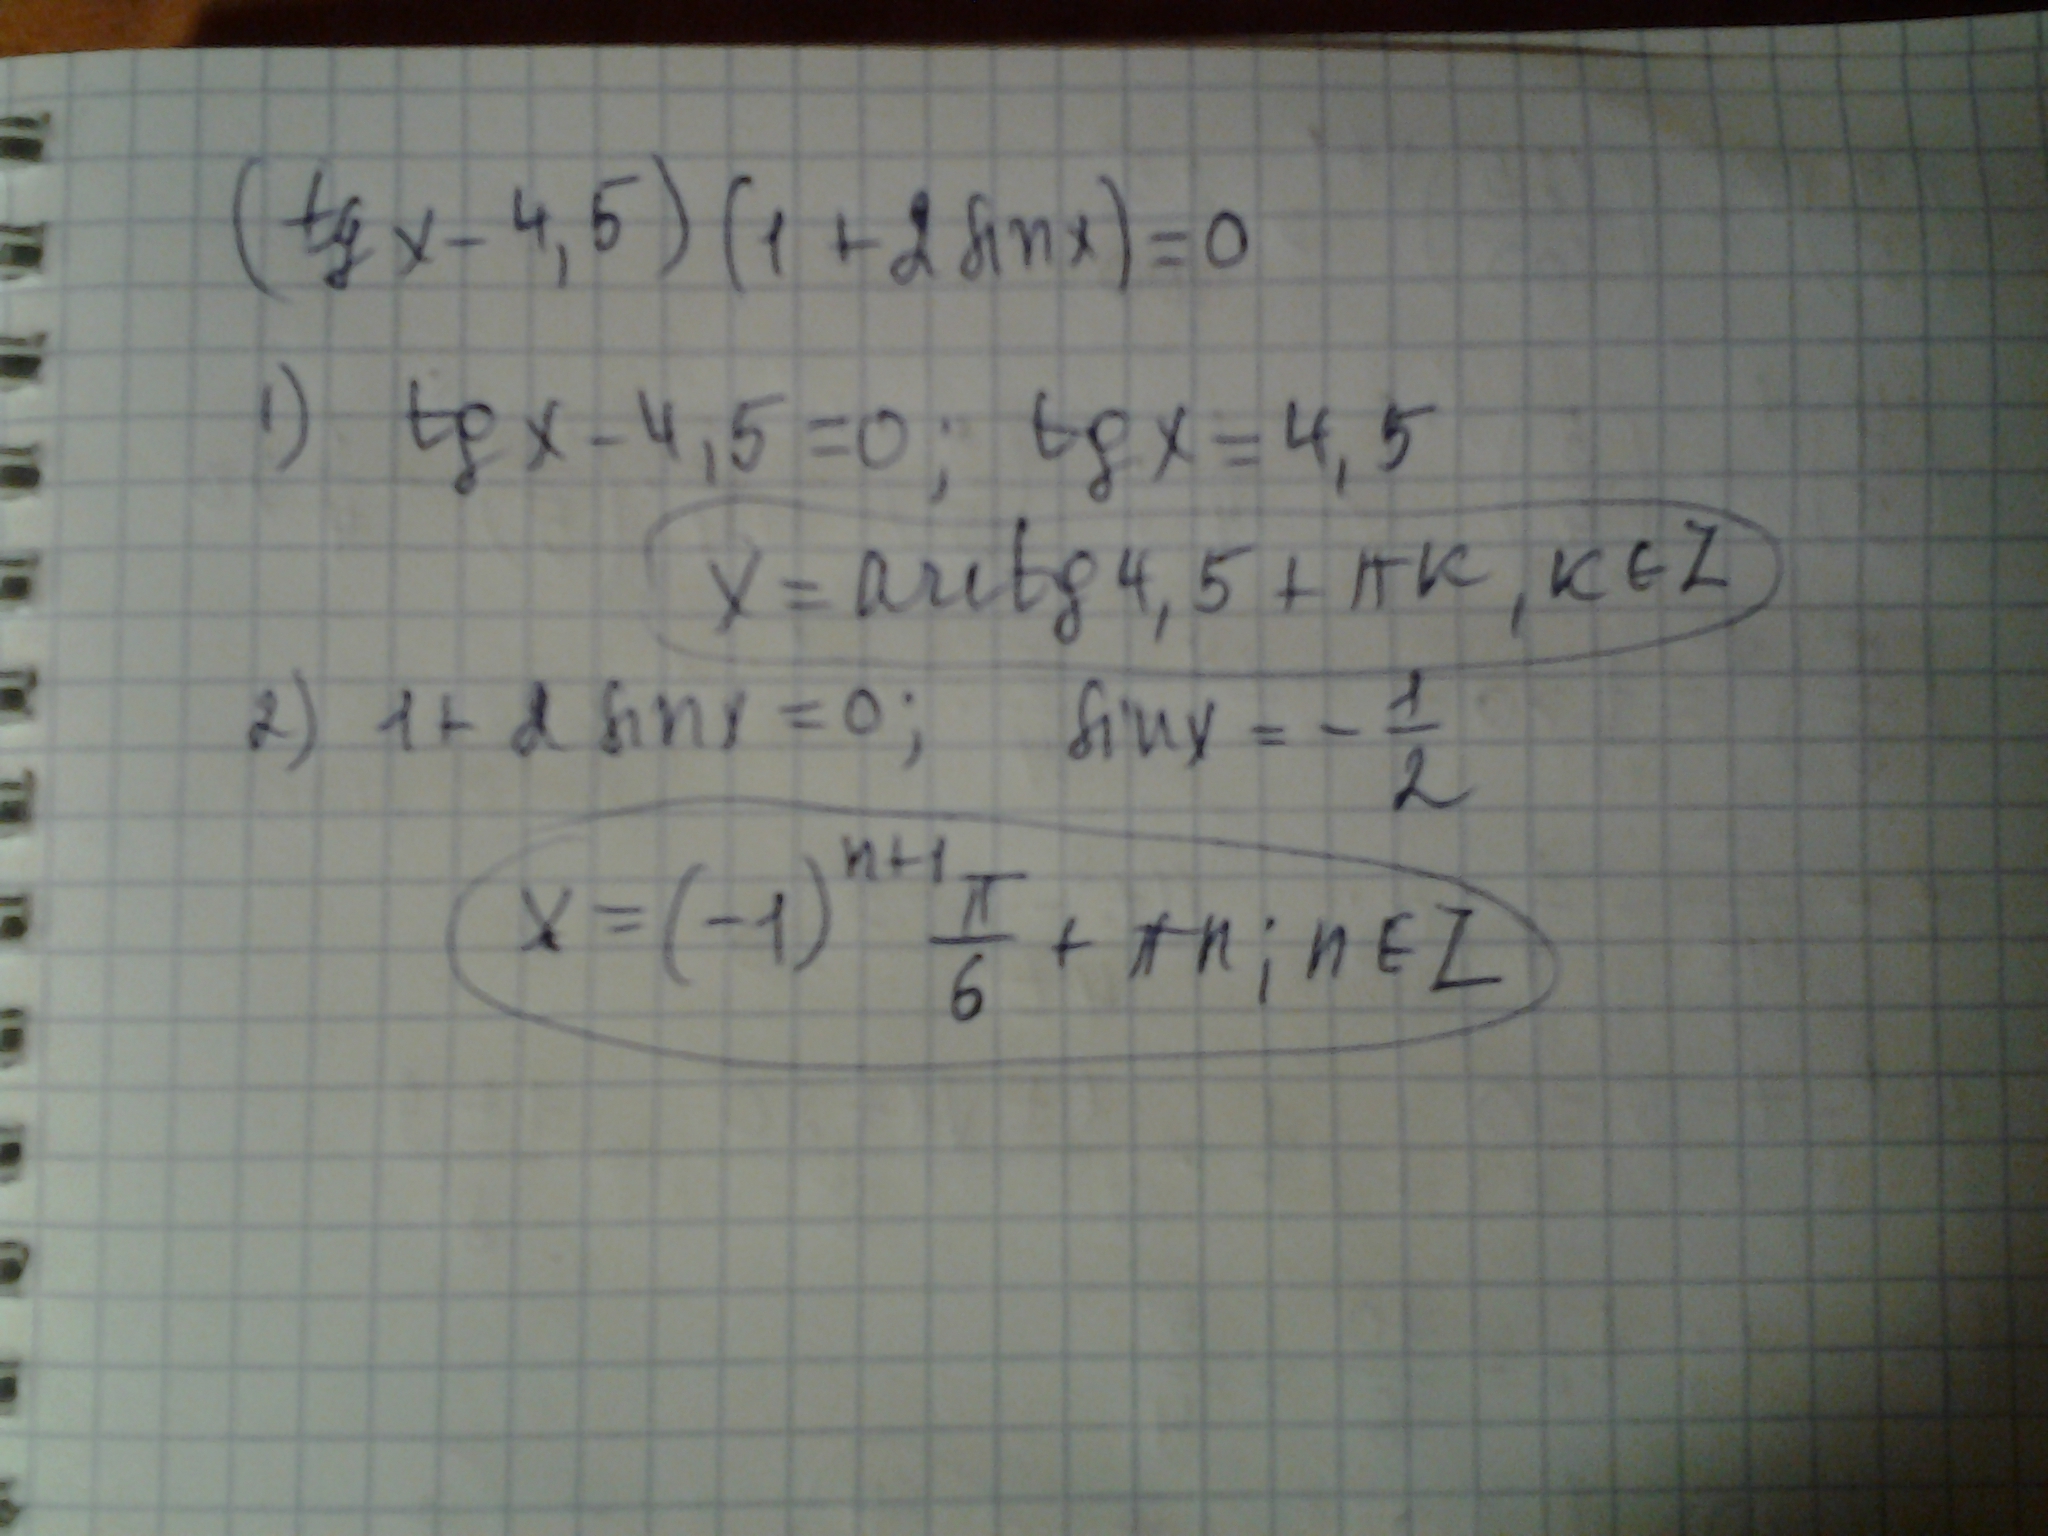 (tg x - 4,5)(1 + 2 sin x) = 0
1) tg x - 4,5 = 0; tg x = 4,5
x = arctg 4,5 + πk, k ∈ Z
2) 1 + 2 sin x = 0; sin x = - 1/2
x = (-1)^{n+1} π/6 + πn; n ∈ Z